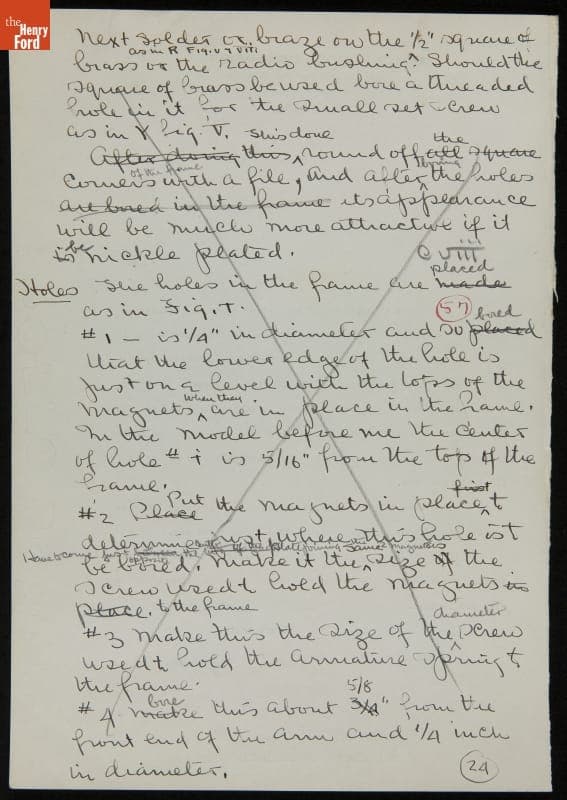 the
Henry
Ford
Next solder or braze on the 1/2" square of
as in R Fig. V & VIII
brass or the radio bushing. Should the
square of brass be used bore a threaded
hole in it for the small set screw
as in Y Fig. V.
is done
After doing this, round off all the square
of the frame
corners with a file, and after the holes
are bored in the frame its appearance
will be much more attractive if it
is be nickle plated.
C VIII
placed
Holes The holes in the frame are made
as in Fig. T.
57
bored
#1 – is 1/4" in diameter and so placed
that the lower edge of the hole is
just on a level with the tops of the
when they
magnets are in place in the frame.
In the model before me the center
of hole # 1 is 5/16" from the top of the
frame.
Put
first
#2 Place the magnets in place &
determine just where this hole is to
be bored. Make it the same size of the
screw used to hold the magnets in
place. to the frame
diameter
#3 Make this the size of the screw
used to hold the armature spring to
the frame.
bore
5/8
#4 make this about 3/4" from the
front end of the arm and 1/4 inch
in diameter.
24